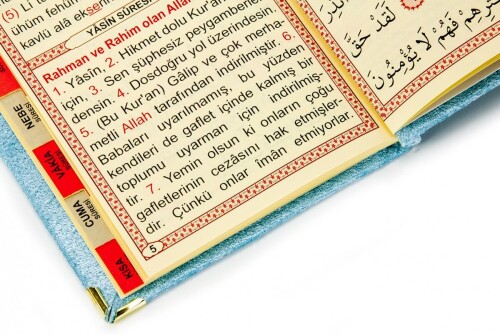 (5) Lî
kavlü alâ
YASİN SÛRESİ
Rahman ve Rahim olan Allah
1. Yâsîn. 2. Hikmet dolu Kur'an
için, 3. Sen şüphesiz peygamberler
densin. 4. Dosdoğru yol üzerindesin.
5. (Bu Kur'an) Gâlip ve çok merha-
metli Allah tarafından indirilmiştir. 6.
Babaları uyarılmamış, bu yüzden
kendileri de gaflet içinde kalmış bir
toplumu uyarman için indirilmiş-
tir. 7. Yemin olsun ki onların çoğu
gafletlerinin cezâsını hak etmişler-
dir. Çünkü onlar îmân etmiyorlar.
5
NEBE
SÛRESİ
VAKIA
CUMA
SÛRESİ
KISA
لَقَدْ حَقَّ
فَهُمْ لَا يُؤْمِنُونَ